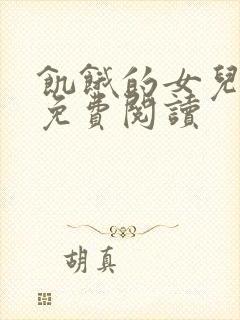 飢餓的女兒
免費閱讀
胡真